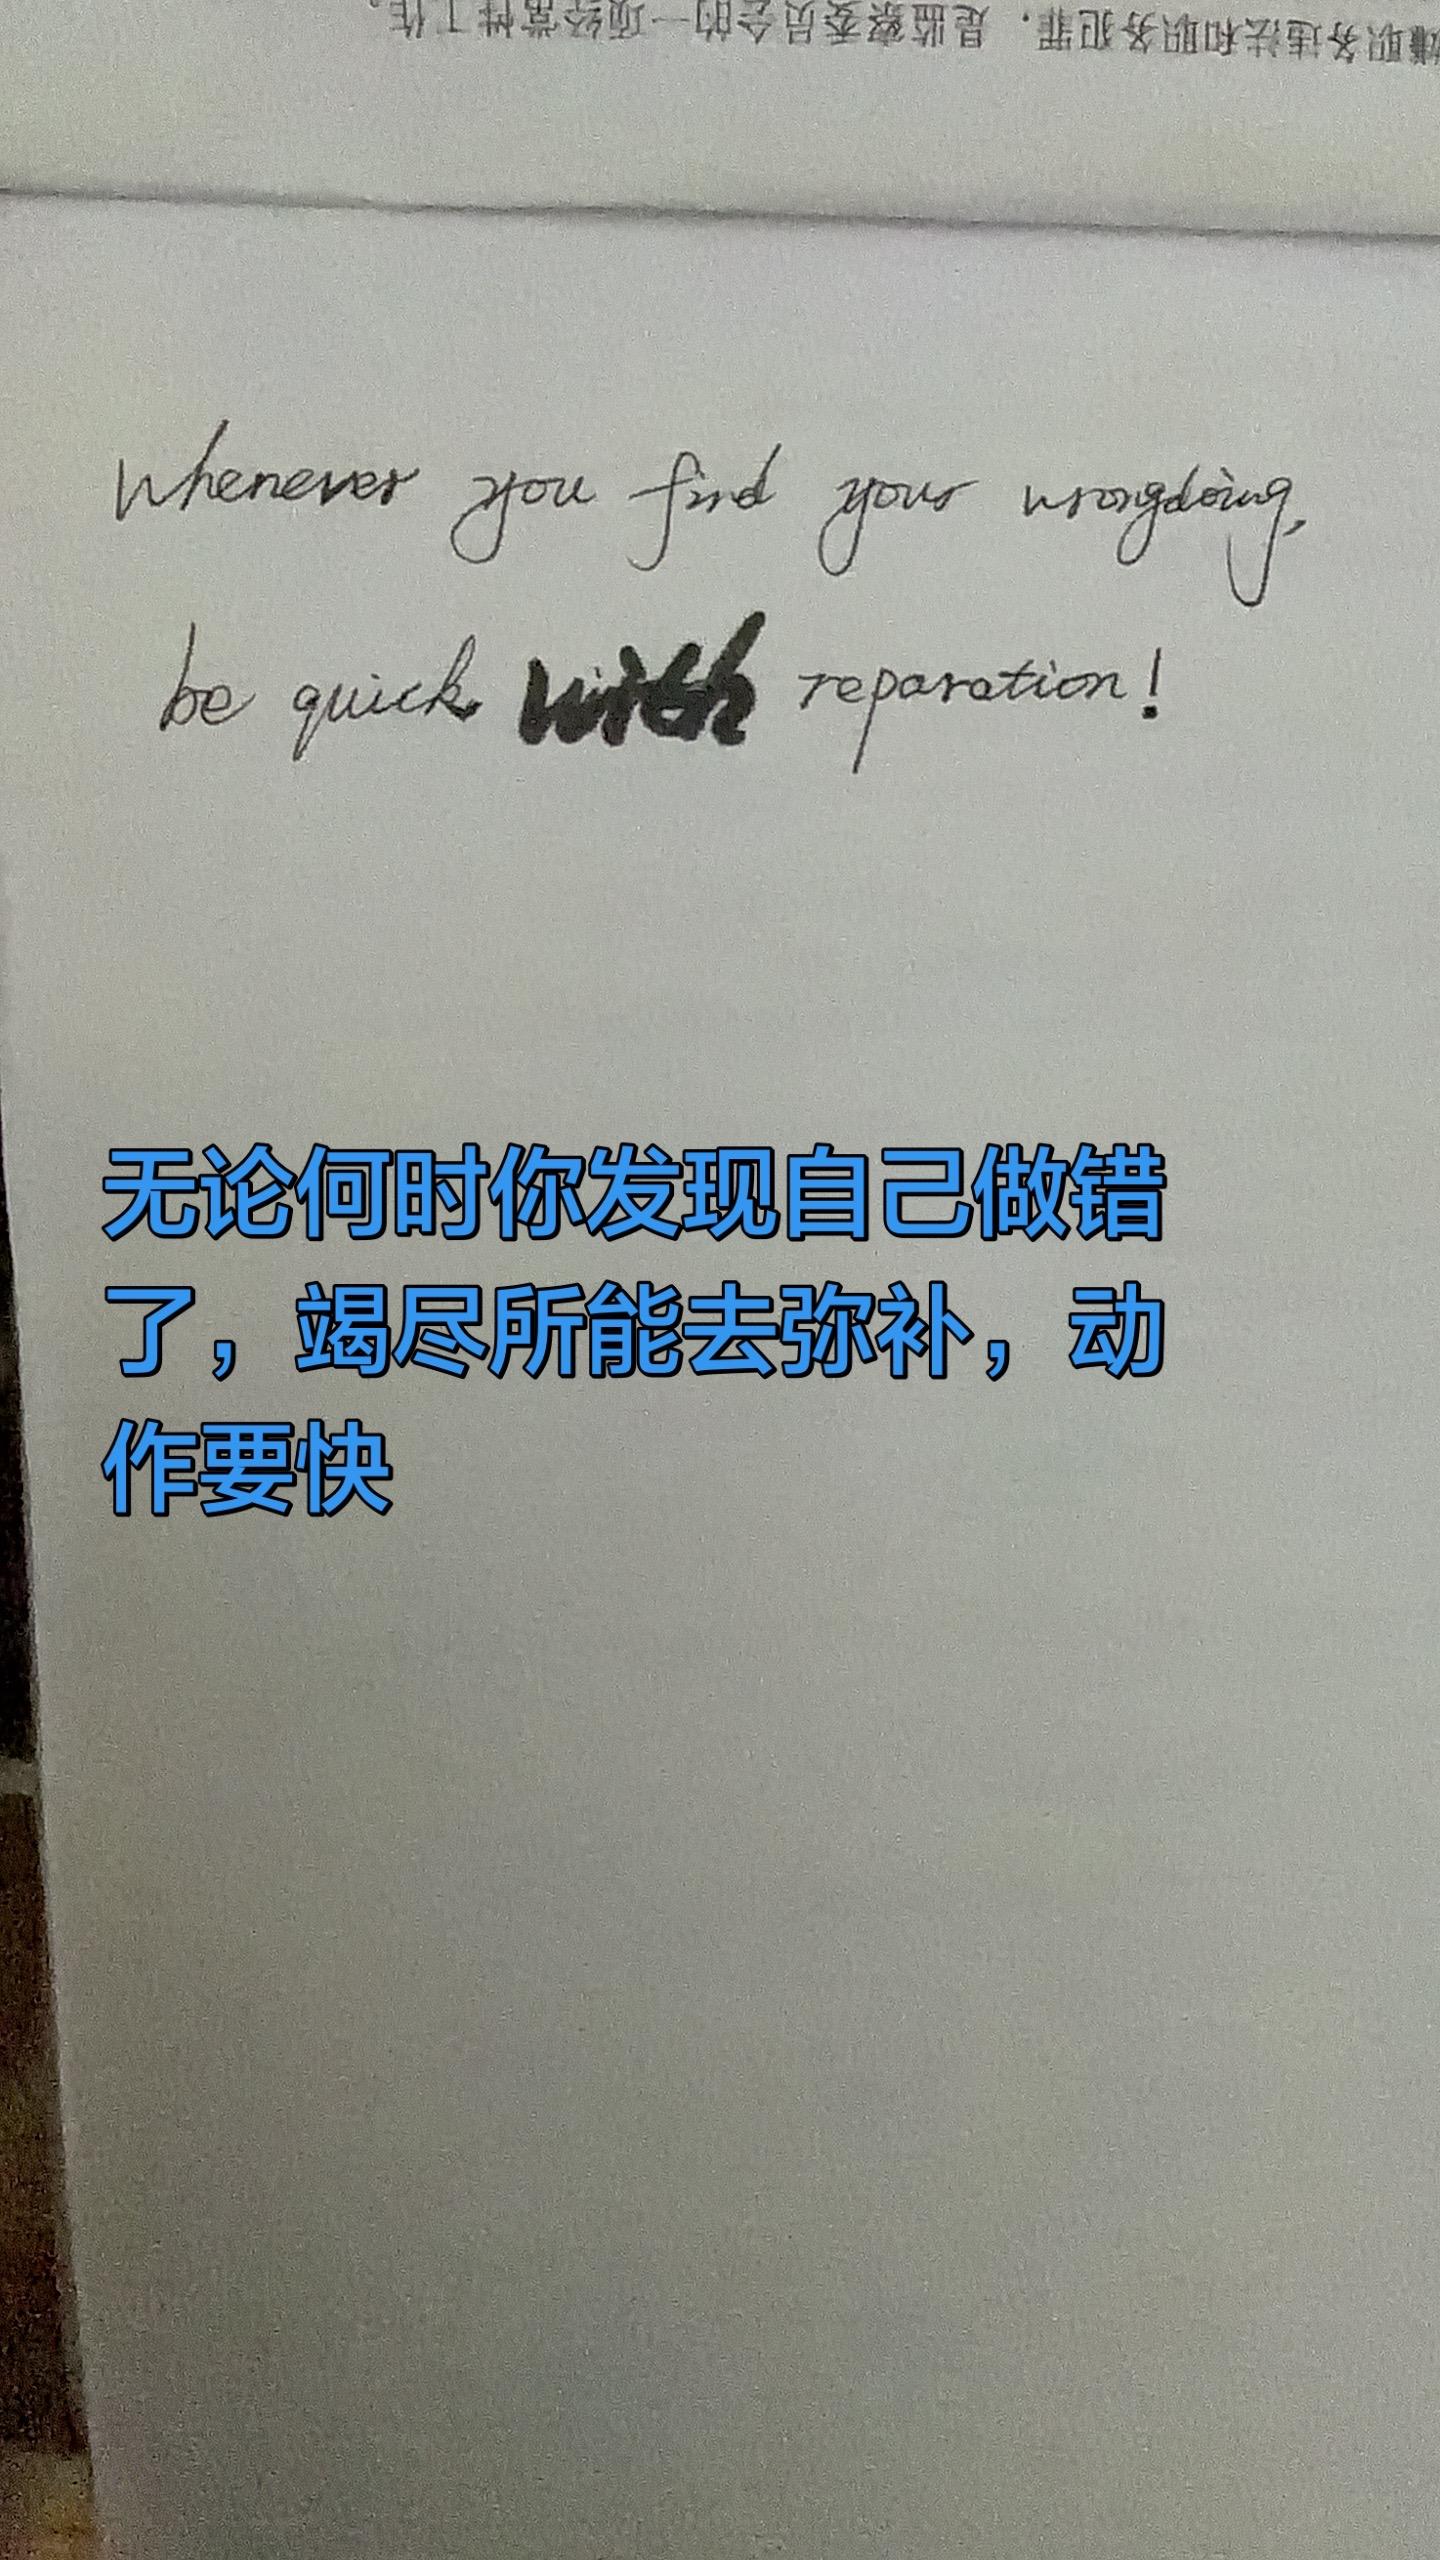 嫌职务违法和职务犯罪，是监察委员会的一项经常性工作。
Whenever you find your wrongdoing,
be quick with reparation!
无论何时你发现自己做错
了，竭尽所能去弥补，动
作要快